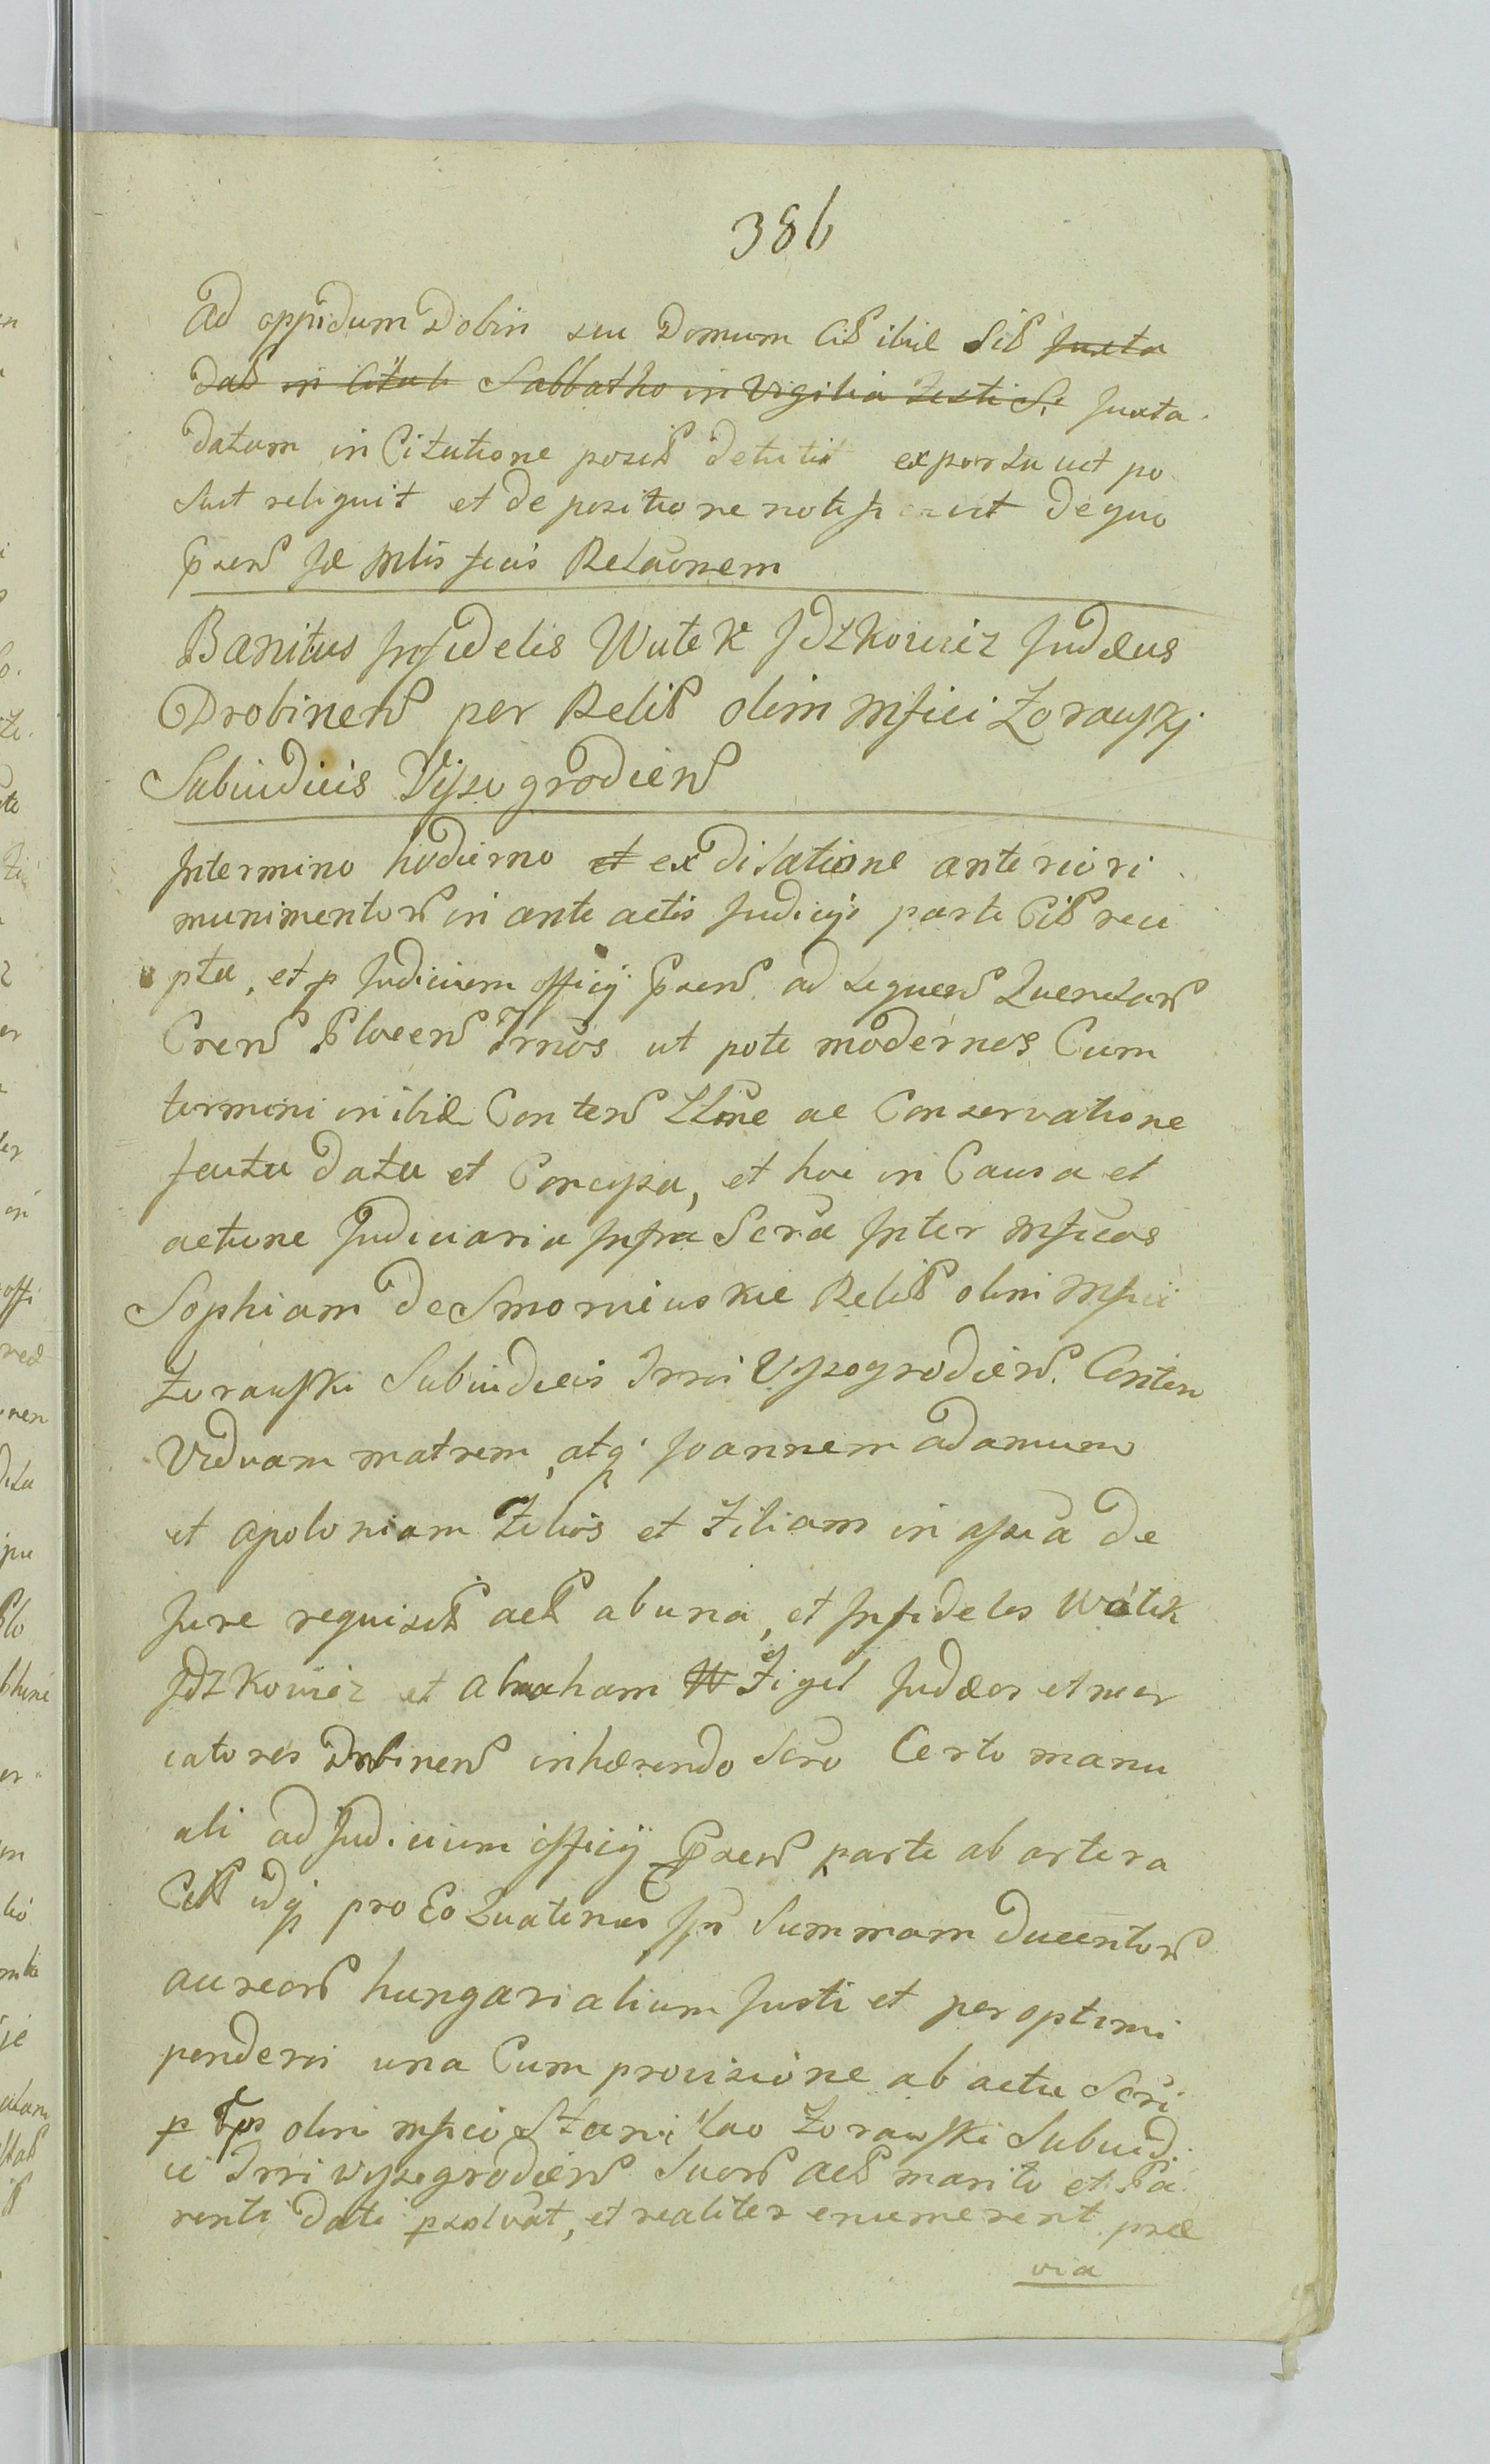 386
Ad oppidum Dobin seu Domum Cit ibid Sit Juxta
Dat in Citab Sabbatho in Vigilia Festi S: Juxta
datam in Citatione posit detulit exportavit po
suit reliquit et de positione notificavit De quo
prsen se Mtis fecis Relaonem
Banitus Infidelis Wutek Idzkowicz Judæus
Drobinen per Relit olim Mfici Zorawskj
Subiudicis Vyszogrodien
In termino hodierno et ex dilatione anteriori
munimentor in ante actis Judicijs parte Cit reci
pta, et p Judicium officij prsen ad sequen Querelar
Cren Plocen Trnos ut pote modernos Cum
termini in ibid Conten Ltne ac Conservatione
facta data et Concessa, et hoc in Causa et
actione Judiciaria Infra Scra Inter Mficos
Sophiam de Smorviewskie Relit olim Mfici
Zorawski Subiudicis Trri Vyszogrodien. Conten
Viduam matrem, atq Joannem Adamum
et Apoloniam Filios et Filiam in assia de
Jure requisit act ab una, et Infideles Wutek
Idzkowicz et Abraham W Figel Judæos et mer
catores Drobinen inhærendo Scro Certo manu
ali ad Judicium officij prsen parte ab altera
Cit idq pro Eo Quatenus Ipsi Summam Ducentor
aureor hungarialium Justi et per optimi
ponderis una Cum provisione ab actu Scri
p Ips olim Mfico Stanislao Zorawski Subiud:
ci Trri Wyszogrodien Suor act marito et Pa
renti dati psolvat, et realiter enumerent præ
via